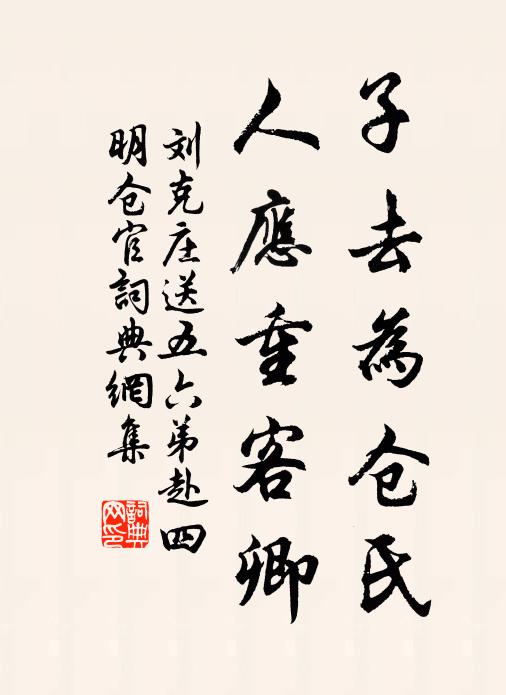 子去為仓氏
人應重客卿
刘克庄送五六弟赴四
明仓官詞典網集
詞典网印